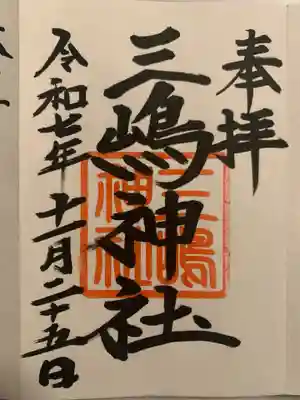 奉拝
三嶋神社
三嶋
神社
令和七年十一月二十五日